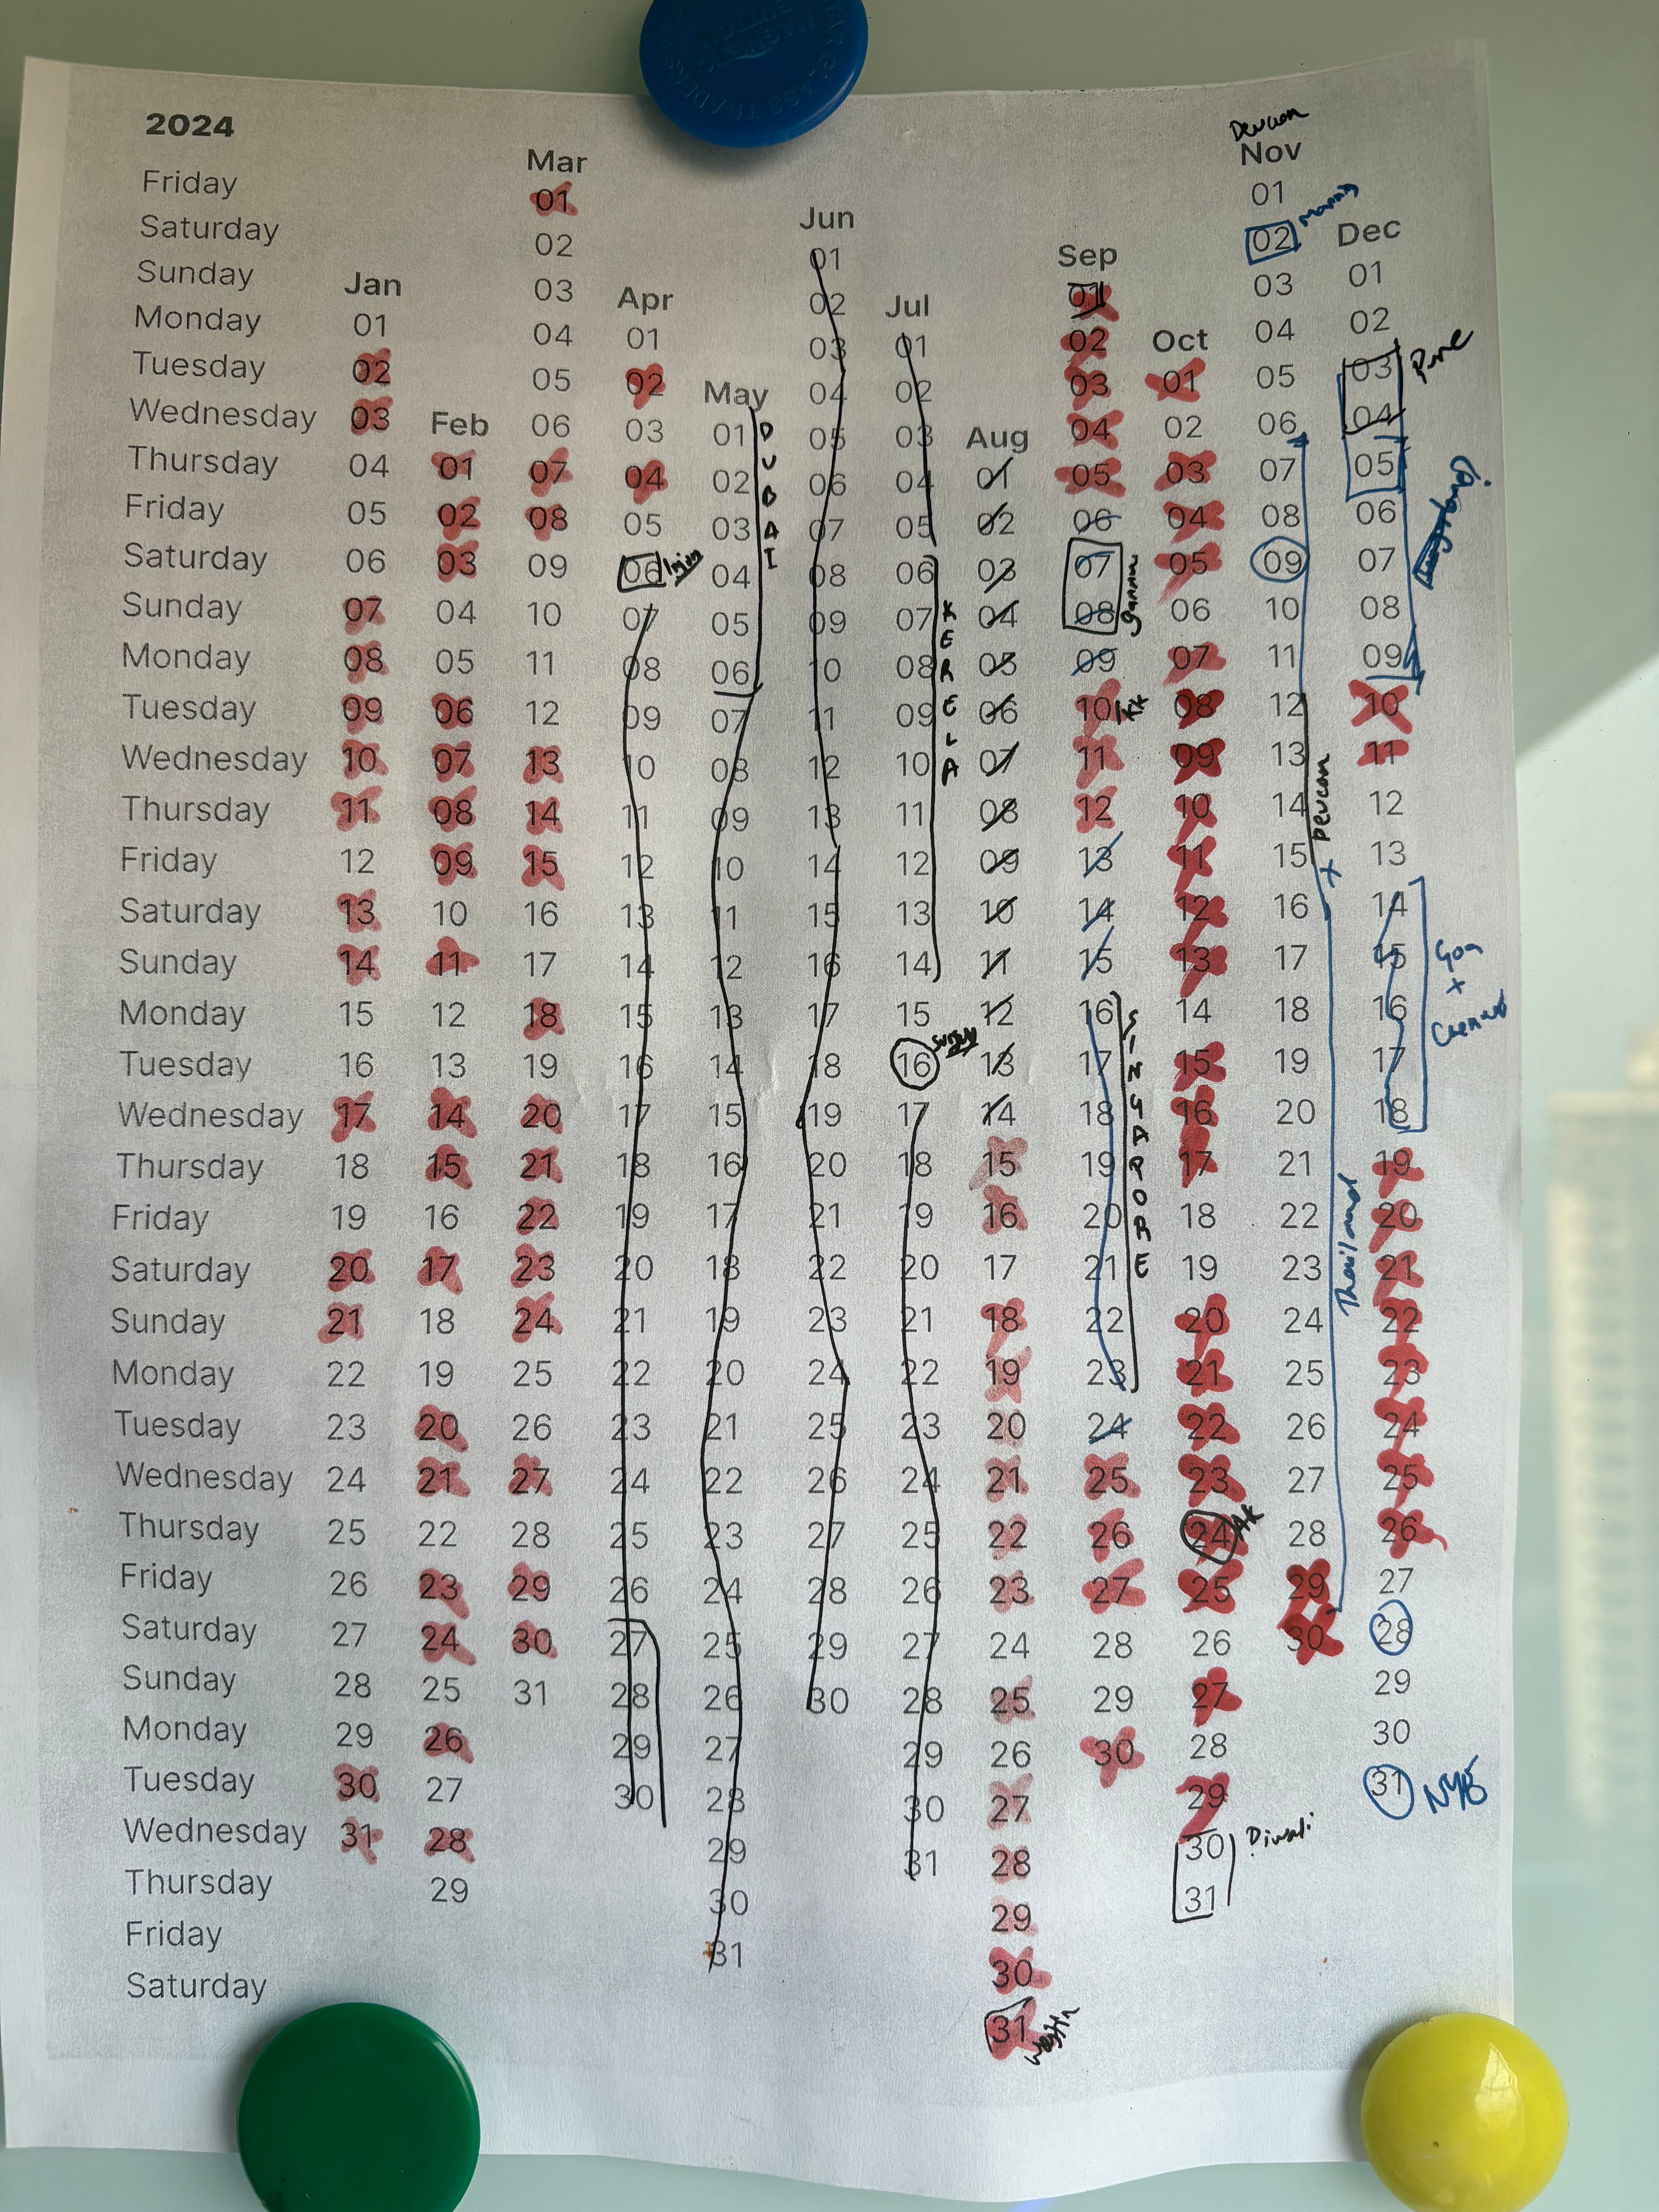 MAGNETIC
BUTTON
GLASS TRADERS
2024
Devcon
Mar Nov
Friday 01 01
Saturday 02 Jun 02 Dec
Sunday 03 Sep 03 01
Jan Apr 01 01
Monday 01 04 01 02 Jul 02 Oct 04 02
Tuesday 02 05 02 May 03 01 03 01 05 03
Wednesday 03 Feb 06 03 01 04 02 Aug 04 02 06 04
Thursday 04 01 07 04 02 05 03 01 05 03 07 05
Friday 05 02 08 05 03 06 04 02 06 04 08 06
Saturday 06 03 09 06 04 07 05 03 07 05 09 07
Sunday 07 04 10 07 05 08 06 04 08 06 10 08
Monday 08 05 11 08 06 09 07 05 09 07 11 09
Tuesday 09 06 12 09 07 10 08 06 10 08 12 10
Wednesday 10 07 13 10 08 11 09 07 11 09 13 11
Thursday 11 08 14 11 09 12 10 08 12 10 14 12
Friday 12 09 15 12 10 13 11 09 13 11 15 13
Saturday 13 10 16 13 11 14 12 10 14 12 16 14
Sunday 14 11 17 14 12 15 13 11 15 13 17 15
Monday 15 12 18 15 13 16 14 12 16 14 18 16
Tuesday 16 13 19 16 14 17 15 13 17 15 19 17
Wednesday 17 14 20 17 15 18 16 14 18 16 20 18
Thursday 18 15 21 18 16 19 17 15 19 17 21 19
Friday 19 16 22 19 17 20 18 16 20 18 22 20
Saturday 20 17 23 20 18 21 19 17 21 19 23 21
Sunday 21 18 24 21 19 22 20 18 22 20 24 22
Monday 22 19 25 22 20 23 21 19 23 21 25 23
Tuesday 23 20 26 23 21 24 22 20 24 22 26 24
Wednesday 24 21 27 24 22 25 23 21 25 23 27 25
Thursday 25 22 28 25 23 26 24 22 26 24 28 26
Friday 26 23 29 26 24 27 25 23 27 25 29 27
Saturday 27 24 30 27 25 28 26 24 28 26 30 28
Sunday 28 25 31 28 26 29 27 25 29 27 29
Monday 29 26 29 27 30 28 26 30 28 30
Tuesday 30 27 30 28 29 27 29 31 NYE
Wednesday 31 28 29 30 28 30 Diwali
Thursday 29 30 31 29 31
Friday 31 30
Saturday 31
DUBAI
Injury
KERELA
Surgery
SINGAPORE
AK
Devcon
+
Thailand
Pune
Goa
+